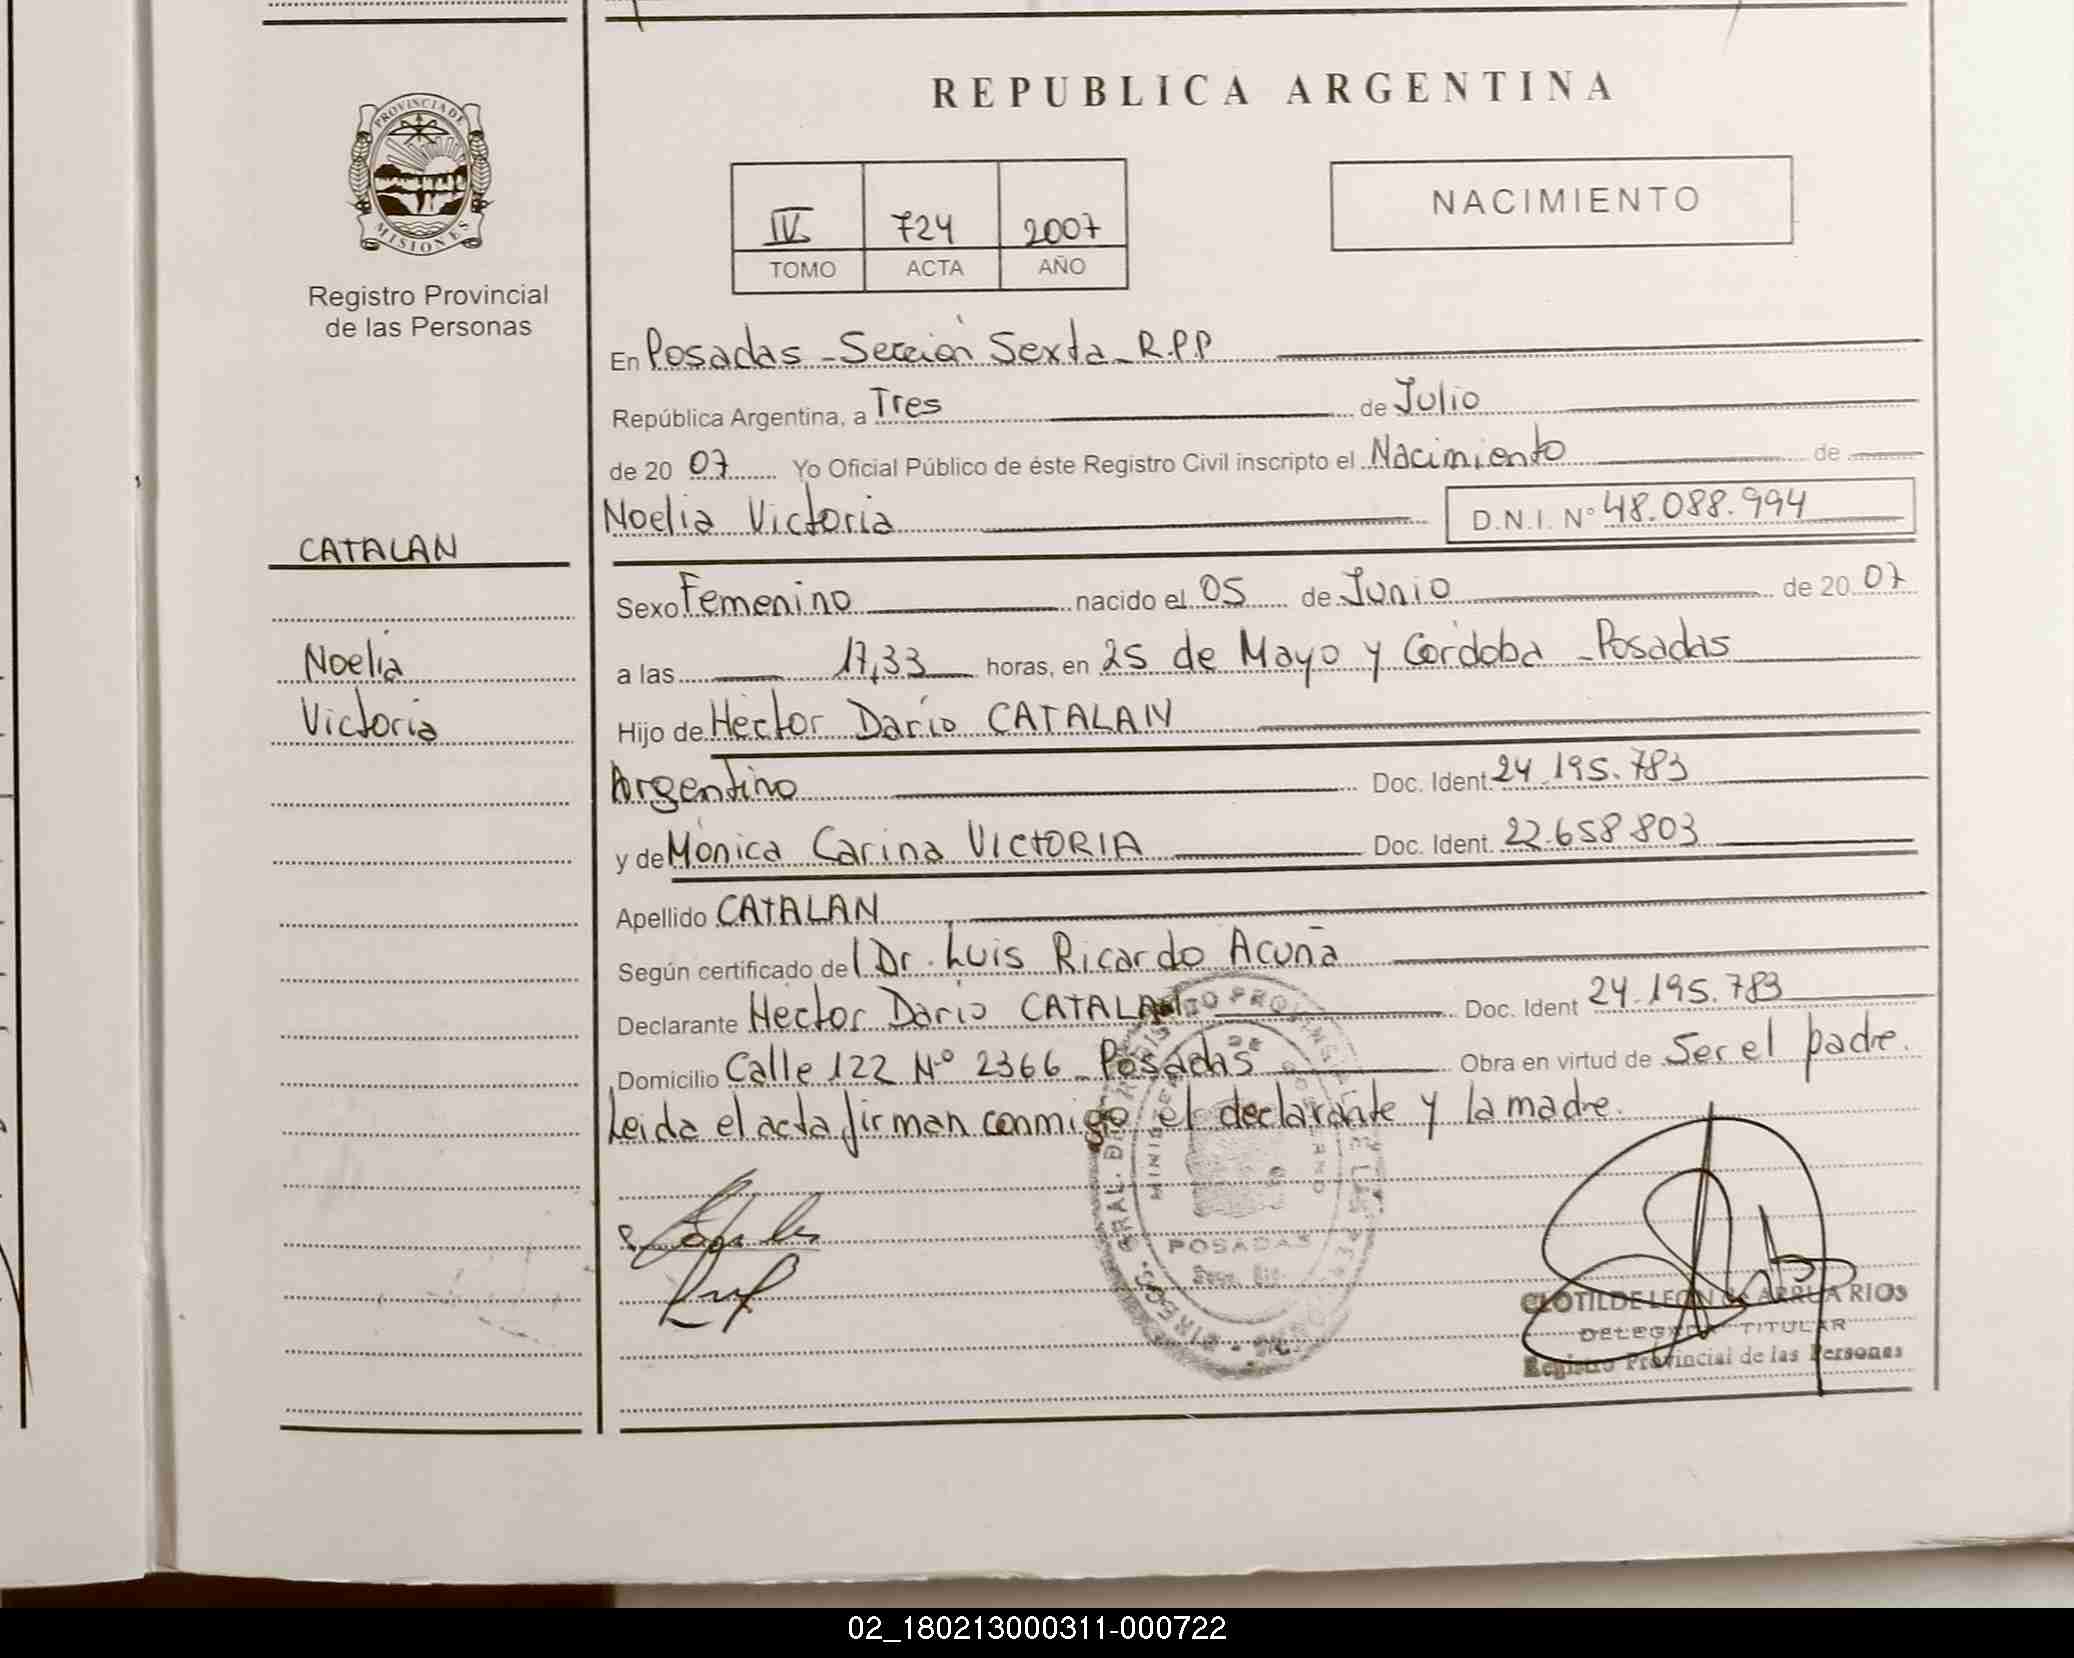 REPUBLICA ARGENTINA
PROVINCIA DE
MISIONES
Registro Provincial
de las Personas
IV 724 2007
TOMO ACTA AÑO
NACIMIENTO
En Posadas - Sección Sexta - R.P.P
República Argentina, a Tres de Julio
de 20 07 Yo Oficial Público de éste Registro Civil inscripto el Nacimiento de
Noelia Victoria D.N.I. Nº 48.088.994
CATALAN
Noelia
Victoria
Sexo Femenino nacido el 05 de Junio de 20 07
a las 17,33 horas, en 25 de Mayo y Córdoba - Posadas
Hijo de Héctor Darío CATALAN
Argentino Doc. Ident. 24.195.783
y de Mónica Carina VICTORIA Doc. Ident. 22.658.803
Apellido CATALAN
Según certificado del Dr. Luis Ricardo Acuña
Declarante Héctor Darío CATALAN Doc. Ident 24.195.783
Domicilio Calle 122 Nº 2366 - Posadas Obra en virtud de Ser el padre.
Leida el acta firman conmigo el declarante y la madre.
POSADAS
CLOTILDE LEON de ARRUA RIOS
DELEGADA TITULAR
Registro Provincial de las Personas
02_180213000311-000722